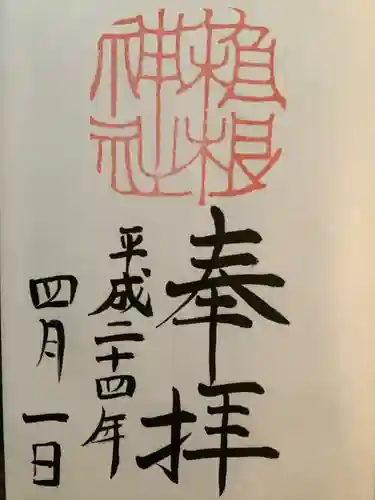 植根
神社
奉拝
平成二十四年
四月一日